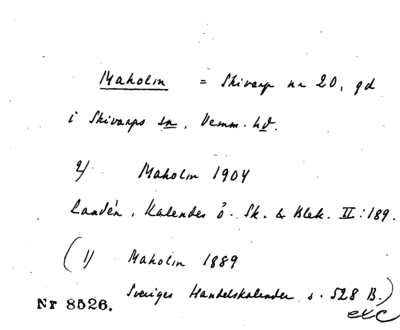 Maholm = Skivarp nr 20, gd
i Skivarps sn, Vemm. hd.
2) Maholm 1904
Landén, Kalender ö. Sk. & Blek. II:189.
(1) Maholm 1889
Sveriges Handelskalender s. 528 B.)
exc
Nr 8526.